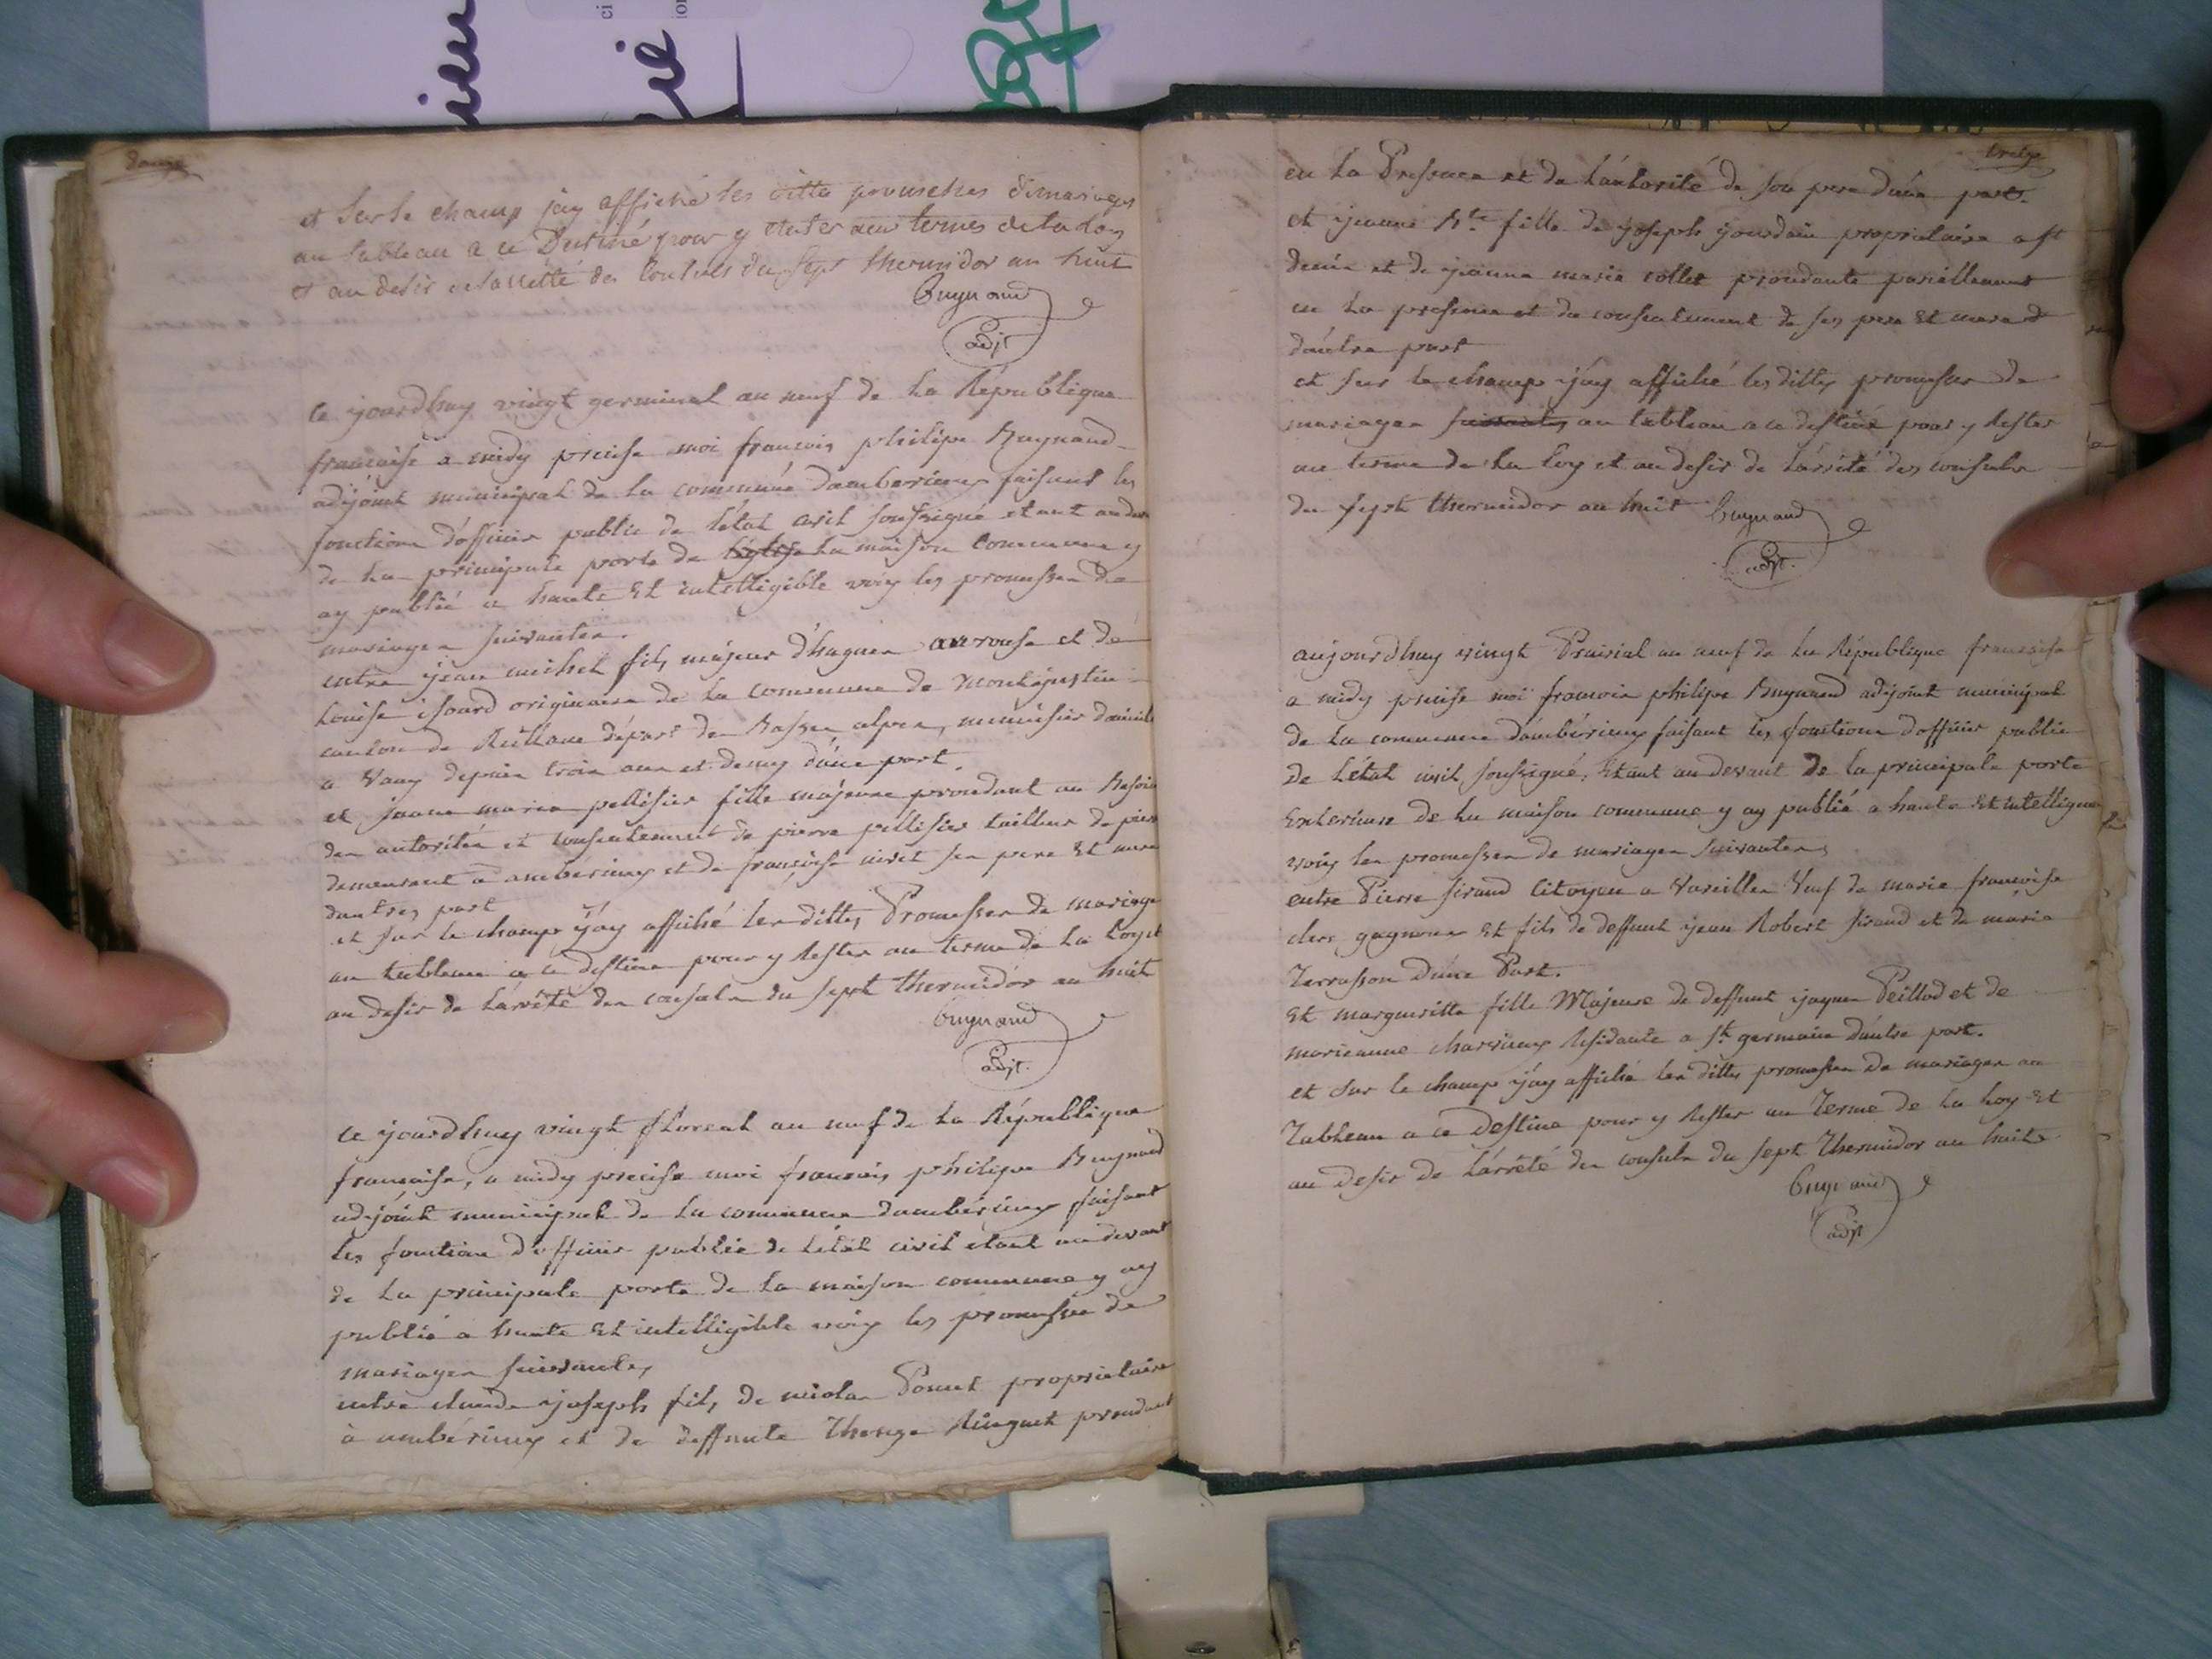 douze
et sur le champ jay affiché les ditte promesses de mariages
au tableau a ce Destiné pour y rester aux termes de la loy
et au desir de larrêté des Consuls du sept thermidor an huit
Buynand
adjt
Ce yourdhuy vingt germinal an neuf de la République
francaise a midy precise moi francois philipe Buynand
adjoint municipal de la commune damberieux faisant les
fonctions dofficier public de létat civil soussigné etant au dev
de la principale porte de l'église la maison Commune y
ay publiée a haute et intelligible voix les promesses de
mariages suivantes.
entre jean michel fils majeur d'hugues et de
Louise isoard originaire de la commune de Montéjustin
canton de Reillane départ des Basses alpes, menuisier domicilié
a Vaux depuis trois ans et demy dune part.
et Jeanne marie pellisier fille majeure procedant au Besoin
des autorités et consentement de pierre pellisier tailleur de pierre
demeurant à ambérieux et de francoise ses pere et mere
dautres part
et sur le champ jay affiché les dittes Promesses de mariage
au tableau a ce destine pour y rester au terme de la loy et
au desir de larrêté des consuls du sept thermidor an huit
Buynand
adjt.
Ce yourdhuy vingt floreal an neuf de la République
francaise, a midy precise moi francois philipe Buynand
adjoint municipal de la commune dambérieux faisant
les fonctions dofficier public de létat civil etant au devant
de la principale porte de la maison commune y ay
publié a haute et intelligible voix les promesses de
mariages suivantes
entre claude joseph fils de nicolas Bonnet proprietaire
à ambérieux et de deffunte Ringuet procedant
treize
en la Presence et de lautorité de son pere dune part.
et jeanne Bte fille de joseph jourdain proprietaire a St
denis et de jeanne marie collet procedante pareillement
en la presence et du consentement de ses pere et mere
dautre part
et sur le champ jay affiché les dittes promesses de
mariages suivantes au tableau a ce destiné pour y rester
au terme de la loy et au desir de larrété des consuls
du sept thermidor an huit
Buynand
adjt.
aujourdhuy vingt Prairial an neuf de la République francaise
a midy precise moi francois philipe Buynand adjoint municipal
de la commune dambérieux faisant les fonctions dofficier public
de létat civil soussigné, étant au devant de la principale porte
Exterieure de la maison commune y ay publié a haute et intelligible
voix les promesses de mariages suivantes
entre Pierre Siraud Citoyen a Vareilles Veuf de marie francoise
clerc gagneux et fils de deffunt jean Robert Siraud et de marie
Terrasson dune Part.
Et margueritte fille Majeure de deffunt jaques Peillod et de
marieanne charvieux residante a St germain dautre part.
et sur le champ jay affiché les dittes promesses de mariages au
Tableau a ce destine pour y rester au Terme de la loy et
au desir de larrêté des consuls du sept Thermidor an huit
Buynand
adjt